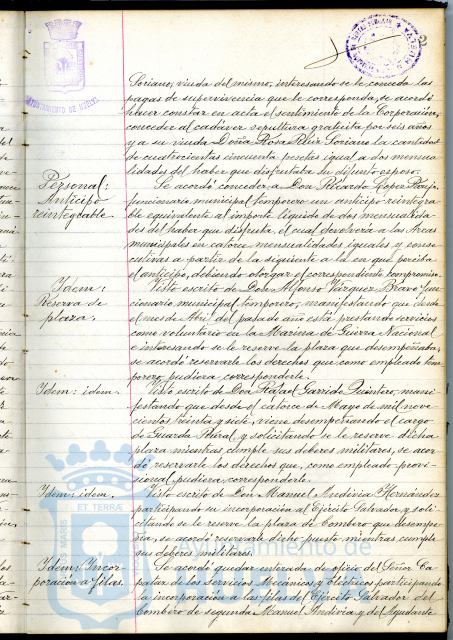 AYUNTAMIENTO DE HUELVA
2
Soriano, viuda del mismo, interesando se le conceda las
pagas de supervivencia que le corresponda, se acordó
hacer constar en acta el sentimiento de la Corporación,
conceder al cadáver sepultura gratuita por seis años
y a su viuda Doña Rosa Soriano la cantidad
de cuatrocientas cincuenta pesetas igual a dos mensua
lidades del haber que disfrutaba su difunto esposo.
Personal:
Anticipo
reintegrable.
Se acordó conceder a Don Ricardo Lopez
funcionario municipal temporero un anticipo reintegra
ble equivalente al importe líquido de dos mensualida
des del haber que disfruta, el cual devolverá a las Arcas
municipales en catorce mensualidades iguales y conse
cutivas a partir de la siguiente a la en que perciba
el anticipo, debiendo otorgar el correspondiente compromiso.
Idem:
Reserva de
plaza.
Visto escrito de Don Alfonso Vázquez Bravo fun
cionario municipal temporero, manifestando que desde
el mes de Abril del pasado año está prestando servicios
como voluntario en la Marina de Guerra Nacional
e interesando se le reserve la plaza que desempeñaba,
se acordó reservarle los derechos que como empleado tem
porero pudiera corresponderle.
Idem: idem.
Visto escrito de Don Rafael Garrido Quintero, mani
festando que desde el catorce de Mayo de mil nove
cientos treinta y siete, viene desempeñando el cargo
de Guarda Rural, y solicitando se le reserve dicha
plaza mientras cumple sus deberes militares, se acor
dó reservarle los derechos que, como empleado provi
sional, pudiera corresponderle.
Idem: idem.
Visto escrito de Don Manuel Andivia Hernández
participando su incorporación al Ejército Salvador, y soli
citando se le reserve la plaza de Bombero que desempe
ña, se acordó reservarle dicho puesto mientras cumple
sus deberes militares.
Idem: Incor
poración a filas.
Se acordó quedar enterada de oficio del Señor Ca
pataz de los Servicios Mecánicos y Eléctricos participando
la incorporación a las filas del Ejército Salvador del
Bombero de segunda Manuel Andivia y del Ayudante
ET TERRA
Ayuntamiento de